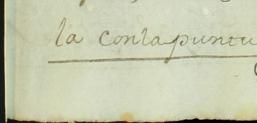 la contapuntu